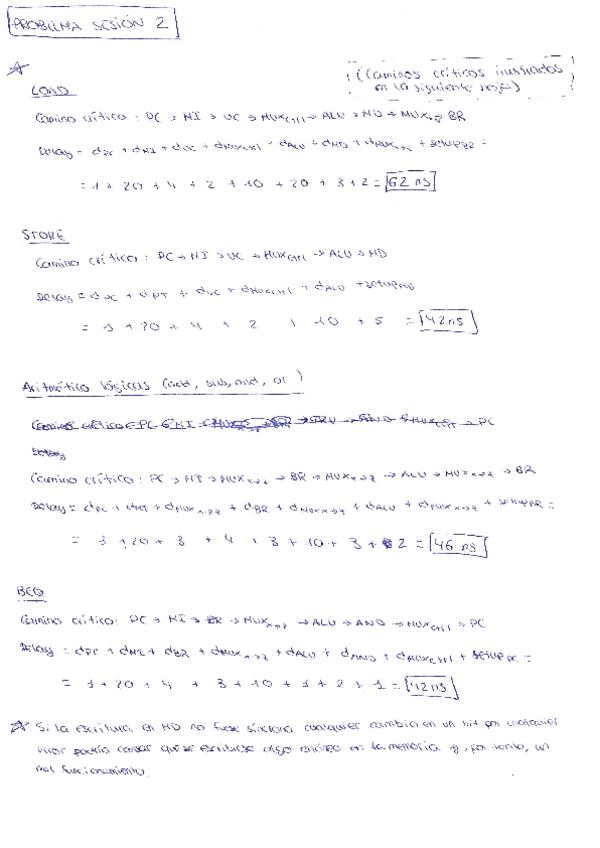 PROBLEMA SESIÓN 2
(Caminos críticos ilustrados
en la siguiente hoja)
LOAD
Camino crítico: PC → MI → UC → MUXctrl → ALU → MD → MUXn→2 → BR
Delay = dPC + dMI + dUC + dMUXctrl + dALU + dMD + dMUXn→2 + setupBR =
= 1 + 20 + 4 + 2 + 10 + 20 + 3 + 2 = 62 ns
STORE
Camino crítico: PC → MI → UC → MUXctrl → ALU → MD
Delay = dUC + dMI + dUC + dMUXctrl + dALU + setupMD
= 1 + 20 + 4 + 2 + 10 + 5 = 42 ns
Aritmético lógicas (add, sub, and, or)
PC
Delay
Camino crítico: PC → MI → MUXn→2 → BR → MUXn→2 → ALU → MUXn→2 → BR
Delay = dPC + dMI + dMUXn→2 + dBR + dMUXn→2 + dALU + dMUXn→2 + setupBR =
= 1 + 20 + 3 + 4 + 3 + 10 + 3 + 2 = 46 ns
BEQ
Camino crítico: PC → MI → BR → MUXn→2 → ALU → AND → MUXctrl → PC
Delay = dPC + dMI + dBR + dMUXn→2 + dALU + dAND + dMUXctrl + setupPC =
= 1 + 20 + 4 + 3 + 10 + 1 + 2 + 1 = 42 ns
Si la escritura en MD no fuese síncrona cualquier cambio en un bit por cualquier
error podría causar que se escribiese algo erróneo en la memoria y, por tanto, un
mal funcionamiento.